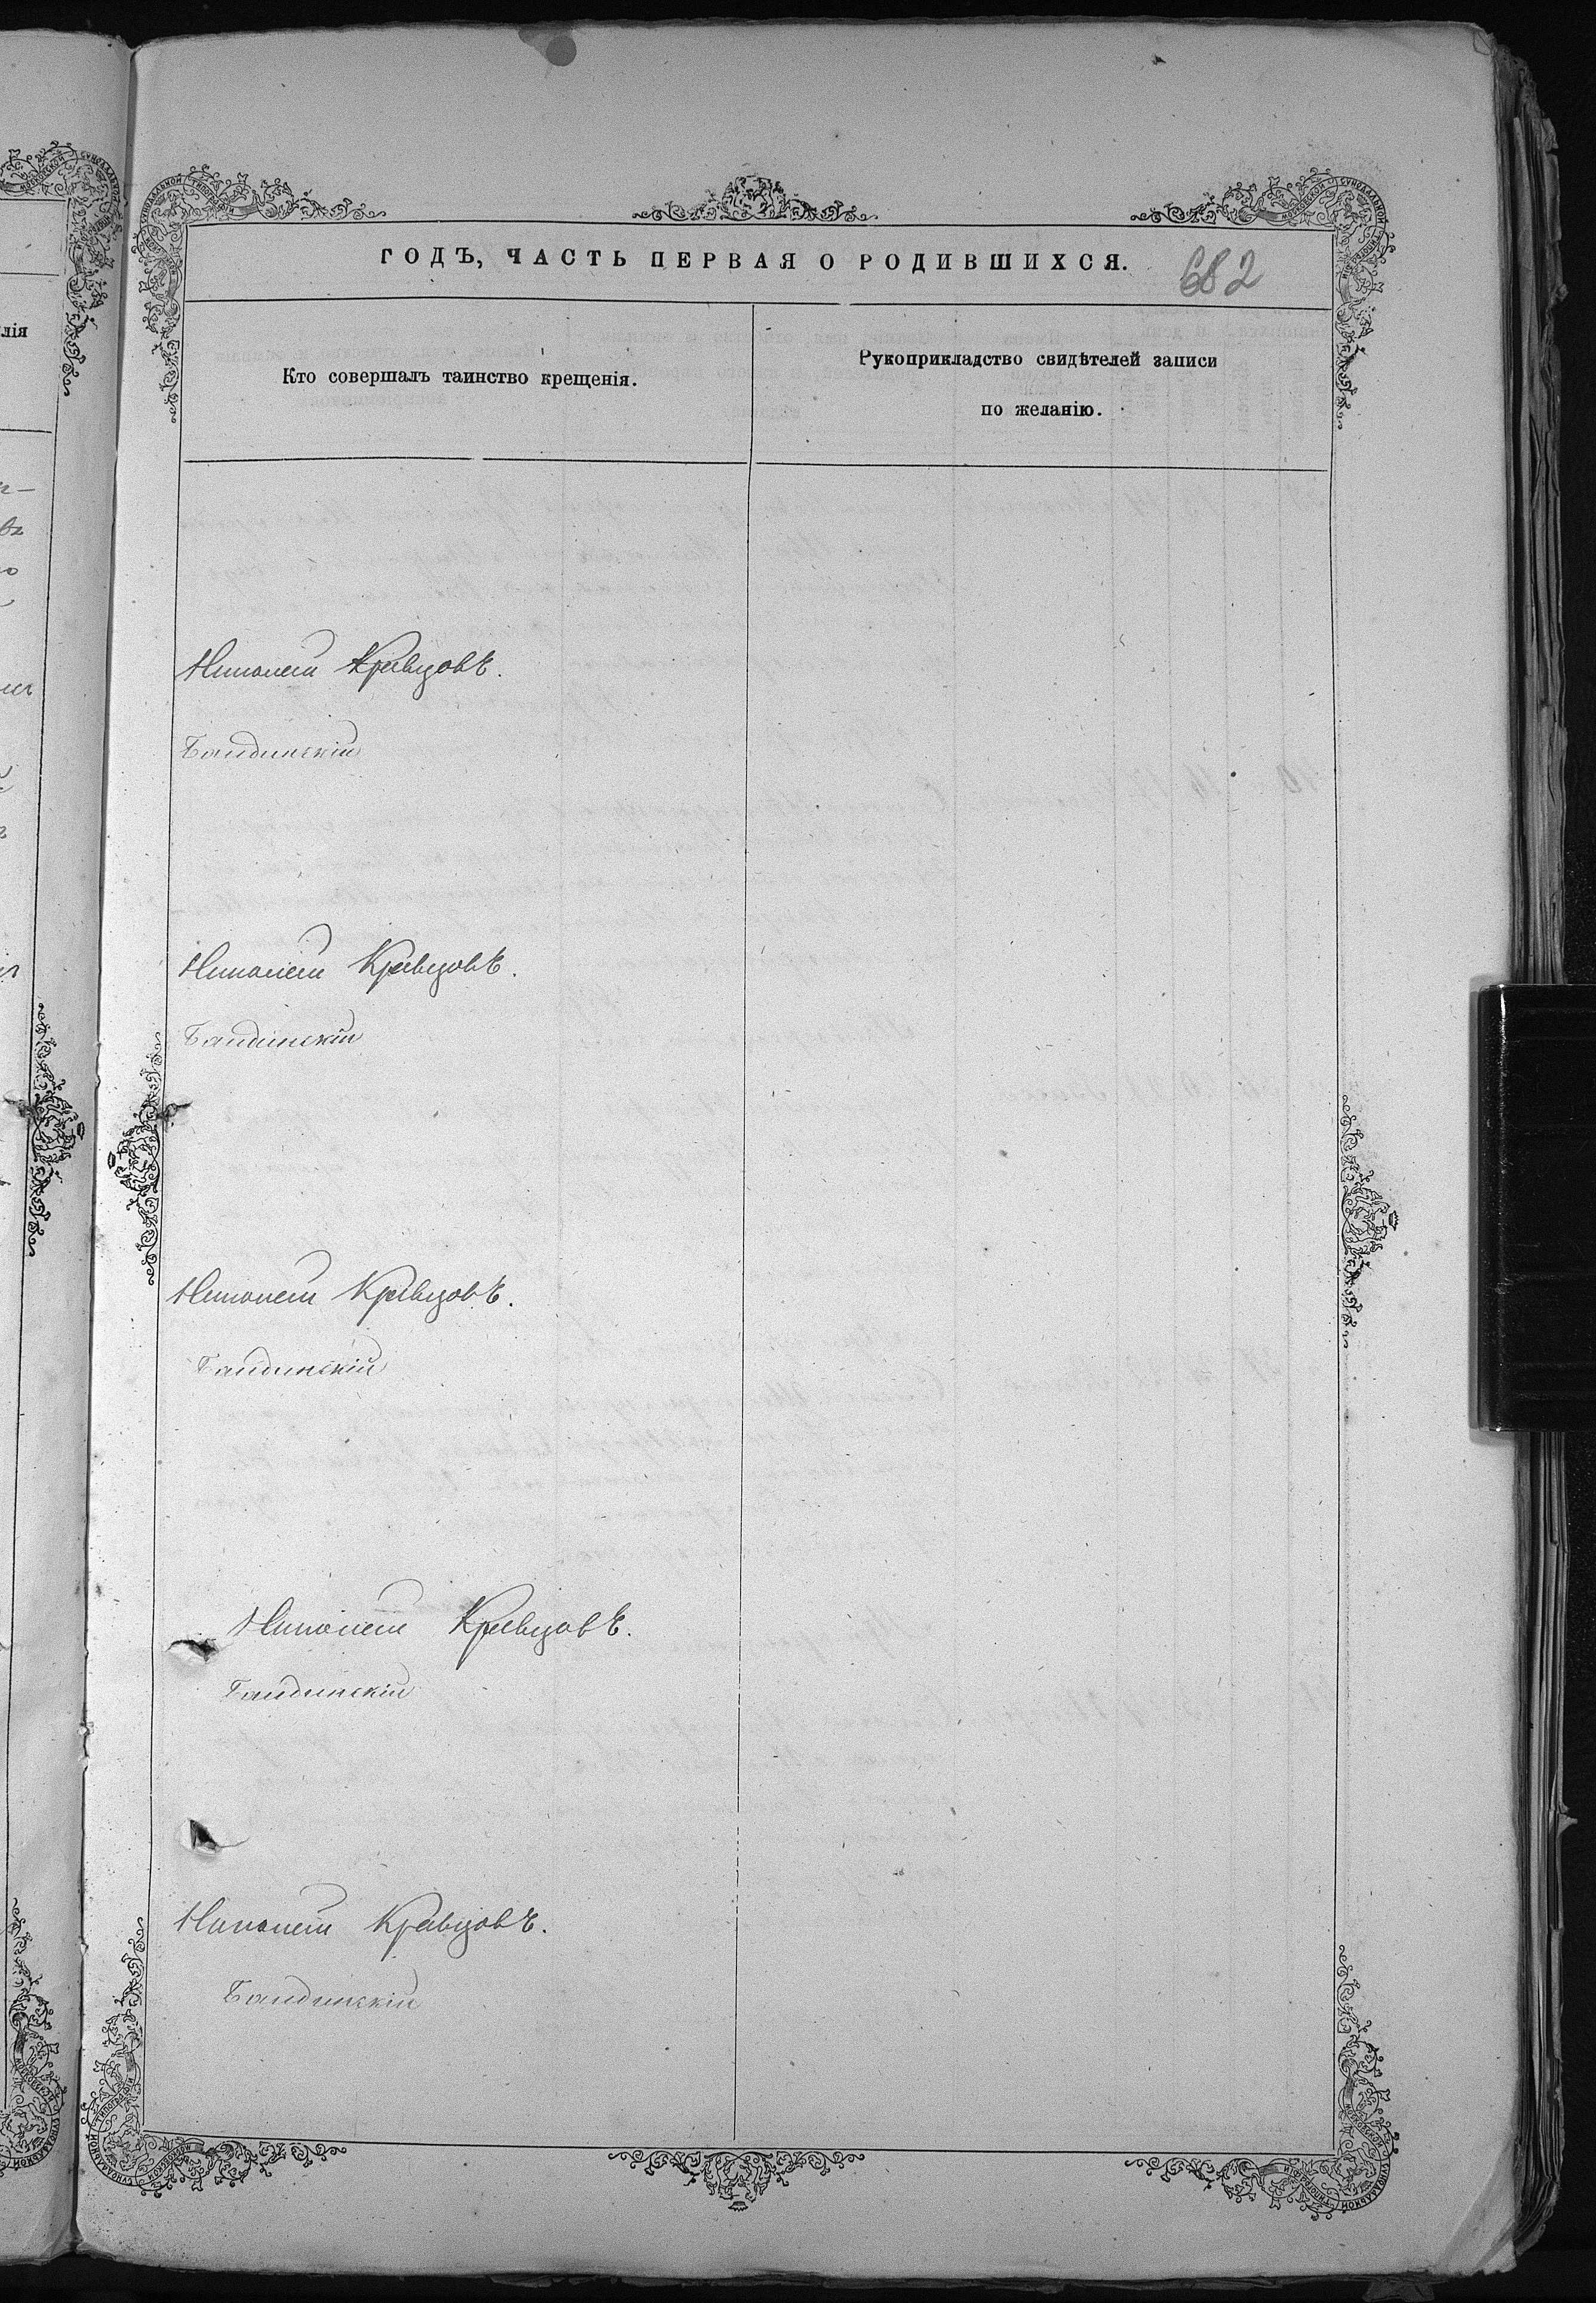 ГОДЪ, ЧАСТЬ ПЕРВАЯ О РОДИВШИХСЯ.
682
лія
Кто совершалъ таинство крещенія.
Рукоприкладство свидѣтелей записи
по желанію.
Николай Кравцовъ.
Бандинскій
Николай Кравцовъ.
Бандинскій
Николай Кравцовъ.
Бандинскій
Николай Кравцовъ.
Бандинскій
Николай Кравцовъ.
Бандинскій